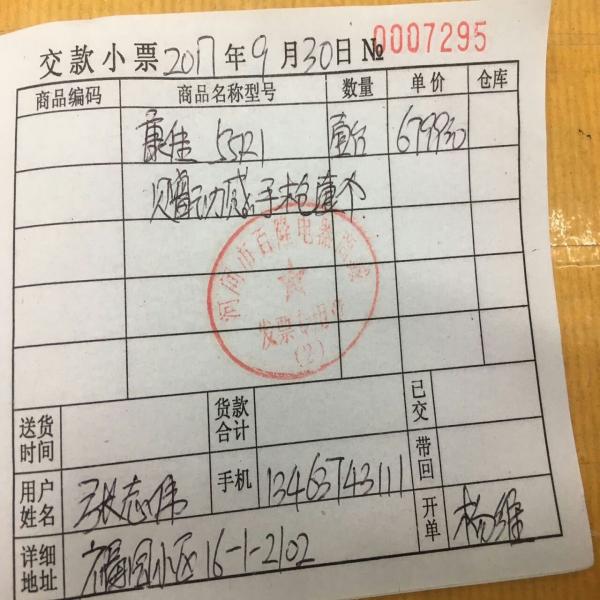 交款小票 2017年9月30日 № 0007295
商品编码 商品名称型号 数量 单价 仓库
康佳 55R1 壹台 679930
贝尊动感手枪壹个
河间市百隆电器商场
发票专用章
(2)
送货时间 货款合计 已交
带回
用户姓名 张志伟 手机 13463743111 开单 杨维
详细地址 福园小区16-1-2102